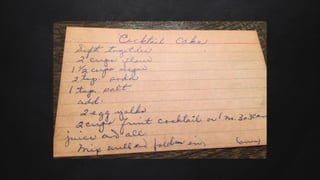 Cocktail Cake
Sift together
2 cups flour
1 ½ cups sugar
2 tsp. soda
1 tsp salt
add:
2 egg yolks
2 cups fruit cocktail or 1 no. 303 can
juice and all
Mix well and fold in
(over)